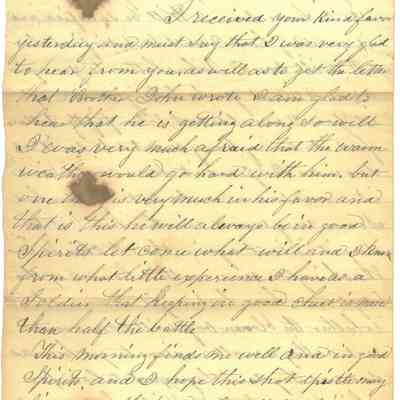 I received your kind favor
yesterday and must say that I was very glad
to hear from you, as will as to get the letter
that Brother John wrote I am glad to
hear that he is getting along so will
I was very much afraid that the warm
weather would go hard with him, but
one is very much in his favor and
that is this he will always be in good
Spirits let come what will and I know
from what little experience I have as a
Soldier that keeping in good cheer is more
than half the battle
This morning finds me well and in good
Spirits, and I hope this short epistle may